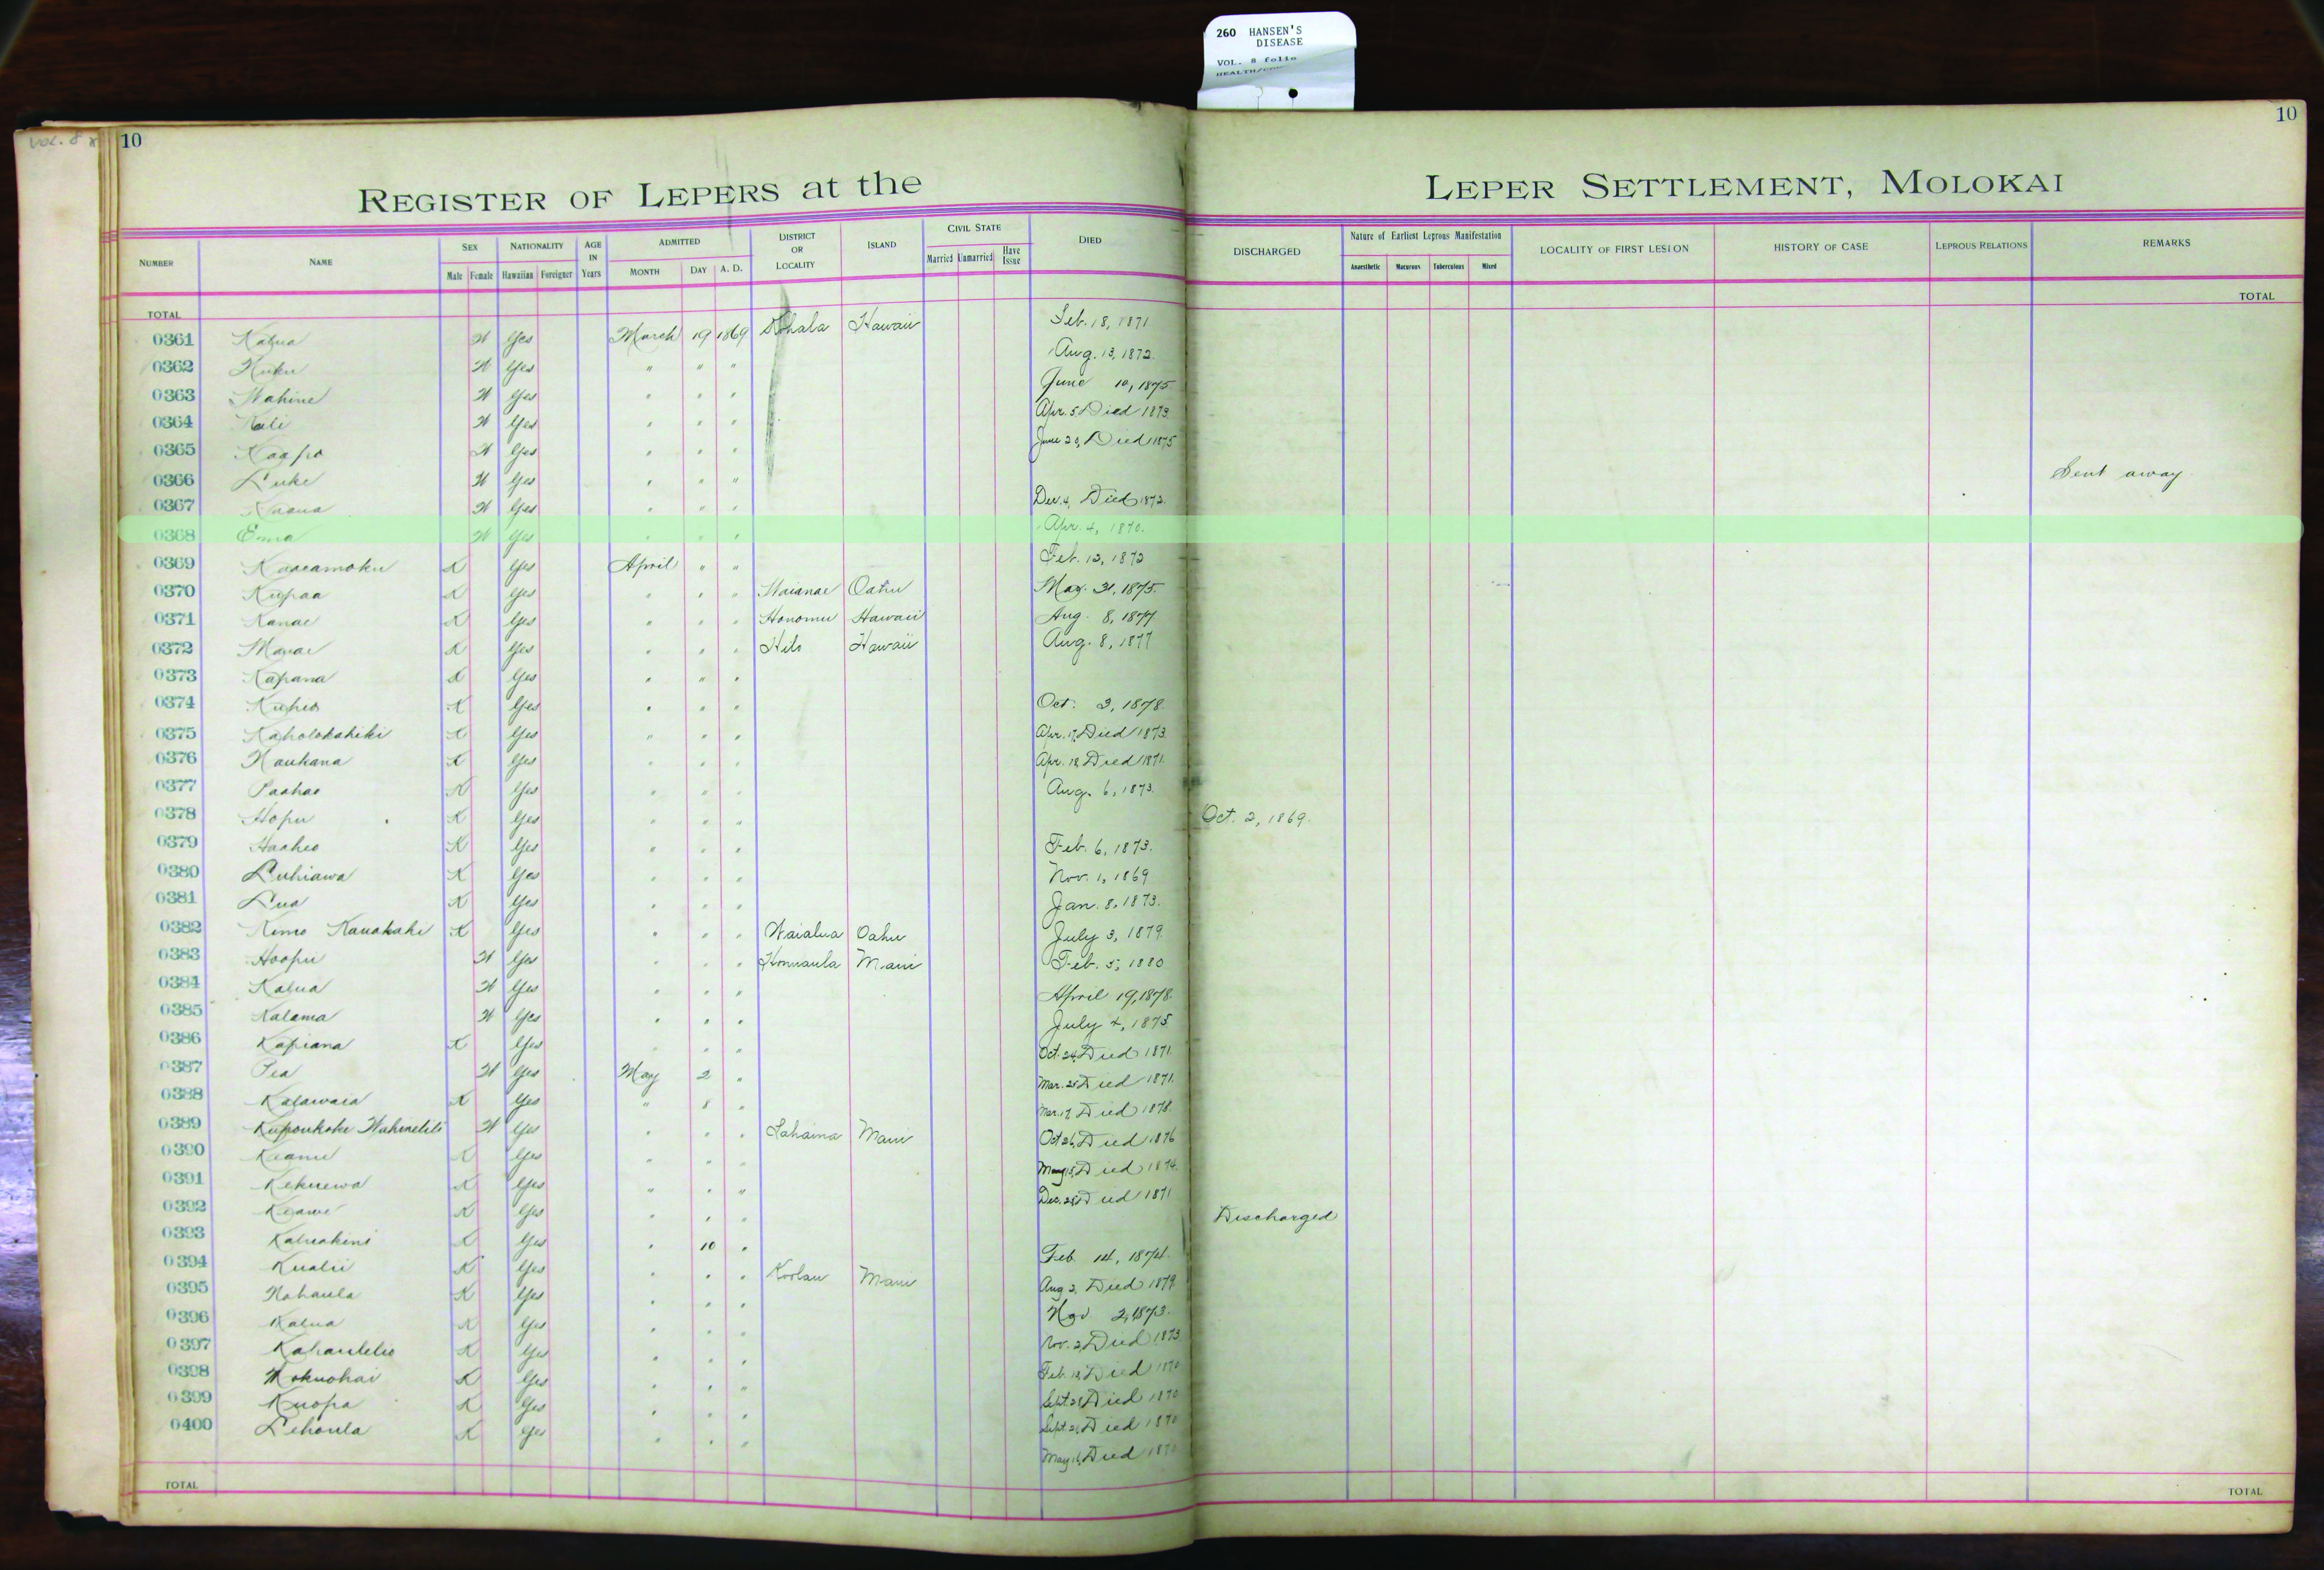 260 HANSEN'S
DISEASE
VOL. 8 folio
VOL. 8
10
10
REGISTER OF LEPERS at the LEPER SETTLEMENT, MOLOKAI
NUMBER NAME SEX NATIONALITY AGE IN Years ADMITTED DISTRICT OR LOCALITY ISLAND CIVIL STATE DIED DISCHARGED Nature of Earliest Leprous Manifestation LOCALITY OF FIRST LESION HISTORY OF CASE LEPROUS RELATIONS REMARKS
Male Female Hawaiian Foreigner MONTH DAY A. D. Married Unmarried Have Issue Anaesthetic Macurous Tuberculous Mixed
TOTAL TOTAL
0361 Kalua W Yes March 19 1869 Kohala Hawaii Feb. 18, 1871
0362 Kuku W Yes " " " Aug. 13, 1872.
0363 Wahine W Yes " " " June 10, 1875
0364 Kali W Yes " " " Apr. 5 Died 1873.
0365 Kaapo W Yes " " " June 20, Died 1875
0366 Luke W Yes " " " Sent away
0367 W Yes " " " Dec. 4, Died 1872.
0368 Emma W Yes " " " Apr. 4, 1870.
0369 Kaaeamoku K Yes April " " Feb. 12, 1872
0370 Kupaa K Yes " " " Waianae Oahu May. 31, 1875.
0371 Kanae K Yes " " " Honomu Hawaii Aug. 8, 1877
0372 K Yes " " " Hilo Hawaii Aug. 8, 1877
0373 Kapana K Yes " " "
0374 Kuheo K Yes " " " Oct. 3, 1878.
0375 Kaholokahiki K Yes " " " Apr. 17, Died 1873.
0376 Naukana K Yes " " " Apr. 18 Died 1871.
0377 Paahao K Yes " " " Aug. 6, 1873.
0378 Hopu K Yes " " " Oct. 2, 1869.
0379 Haaheo K Yes " " " Feb. 6, 1873.
0380 Luhiawa K Yes " " " Nov. 1, 1869
0381 Lua K Yes " " " Jan. 8, 1873.
0382 Kimo Kauakahi K Yes " " " Waialua Oahu July 3, 1879.
0383 Hoopii W Yes " " " Honuaula Maui Feb. 5, 1880
0384 Kalua W Yes " " " April 19, 1878.
0385 Kalama W Yes " " " July 4, 1875.
0386 Kapiana K Yes " " " Oct. 24, Died 1871.
0387 Pea W Yes May 2 " Mar. 25 Died 1871.
0388 Kalawaia K Yes " 8 " Mar. 17, Died 1878.
0389 W Yes " " " Lahaina Maui Oct 26, Died 1876
0390 Keanu K Yes " " " May 15, Died 1874.
0391 Kekuewa K Yes " " " Dec. 28, Died 1871
0392 Keawe K Yes " " " Discharged
0393 Kaluakini K Yes " 10 " Feb. 14, 1874.
0394 Kualii K Yes " " " Koolau Maui Aug 2, Died 1879.
0395 Nahaula K Yes " " " Nov 2, 1873.
0396 Kalua K Yes " " " Nov. 2, Died 1873
0397 Kahaulelio K Yes " " " Feb. 18, Died 1870
0398 Mokuohai K Yes " " " Sept. 28, Died 1870
0399 Kuopa K Yes " " " Sept. 21, Died 1870
0400 Lehaula K Yes " " " May 16, Died 1870
TOTAL TOTAL